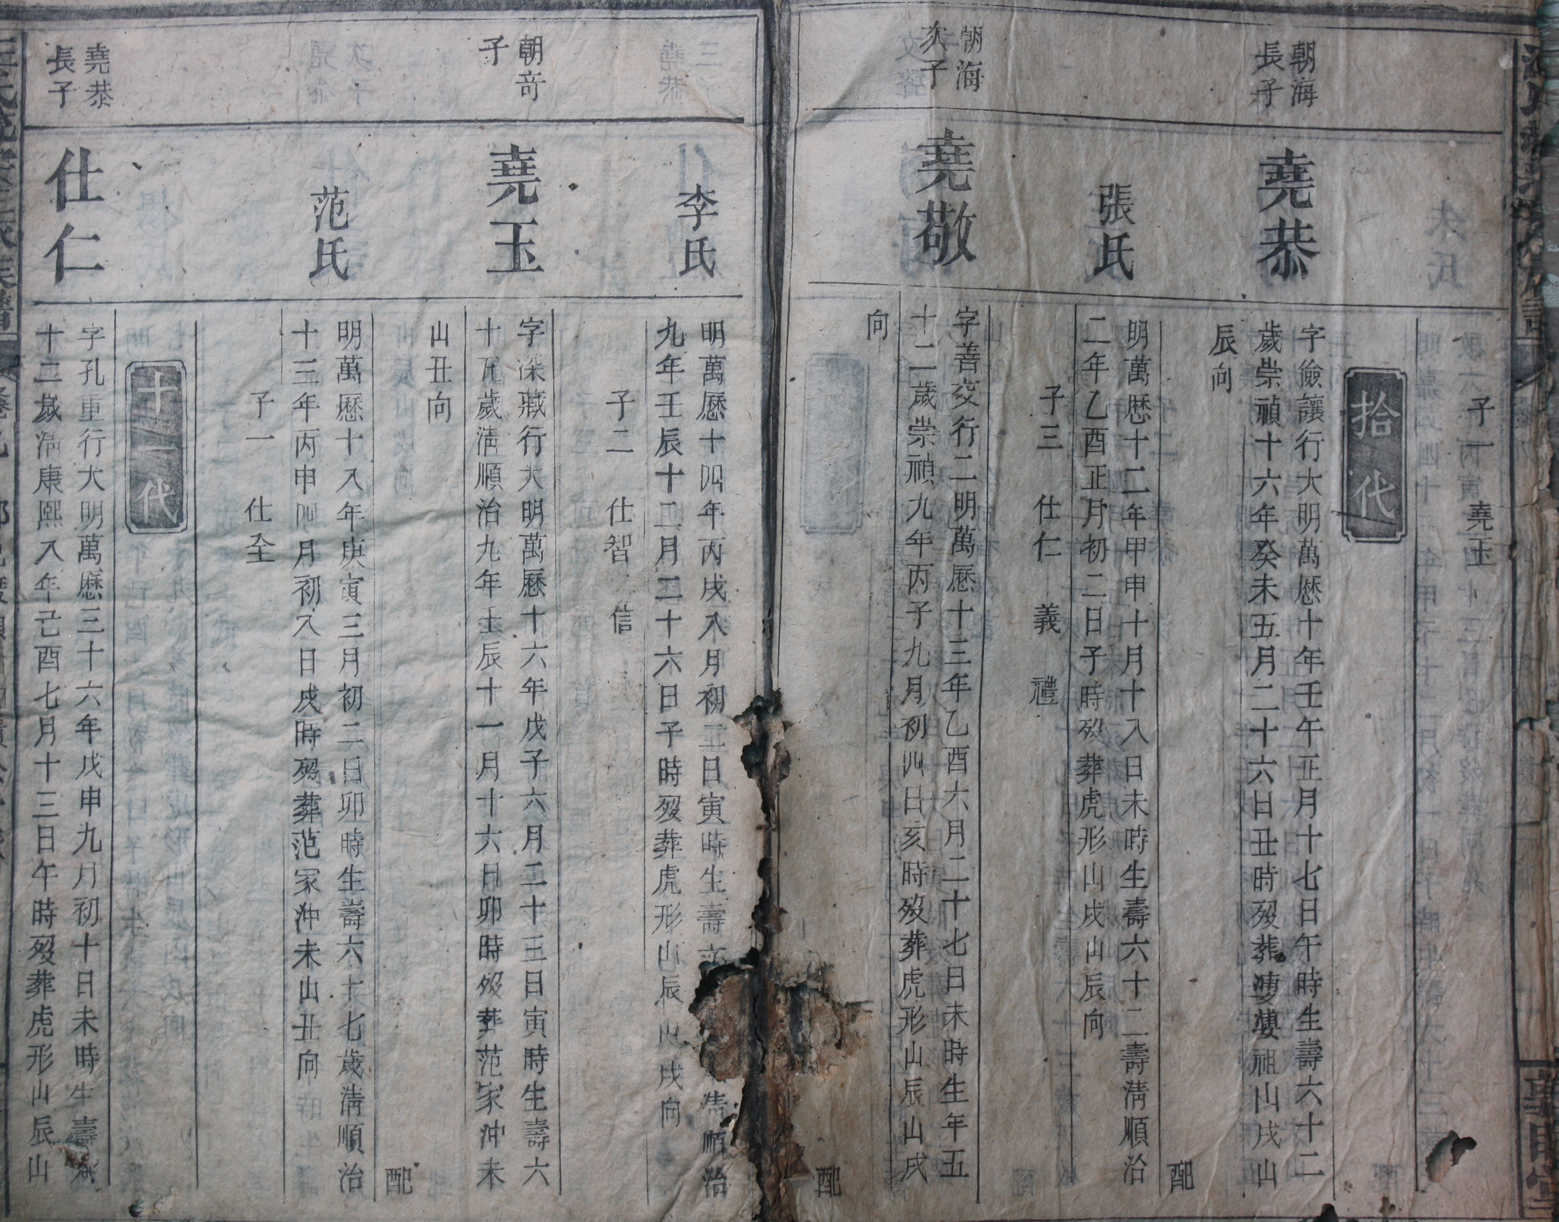 子一
堯玉
拾代
朝海
長子
堯恭
字儉讓行大明萬歷十年壬午五月十七日午時生壽六十二
歲崇禎十六年癸未五月二十六日丑時歿葬婆婆祖山戌山
辰向
配
張氏
明萬歷十二年甲申十月十八日未時生壽六十二壽淸順治
二年乙酉正月初二日子時歿葬虎形山戌山辰向
子三 仕仁 義 禮
朝海
次子
堯敬
字善交行二明萬歷十三年乙酉六月二十七日未時生年五
十二歲崇禎九年丙子九月初四日亥時歿葬虎形山辰山戌
向
配
李氏
明萬歷十四年丙戌八月初五日寅時生壽 順治
九年壬辰十二月二十六日子時歿葬虎形山辰山戌向
子二 仕智 信
朝奇
子
堯玉
字深藏行大明萬歷十六年戊子六月二十三日寅時生壽六
十五歲淸順治九年壬辰十一月十六日卯時歿葬范家沖未
山丑向
配
范氏
明萬歷十八年庚寅三月初二日卯時生壽六十七歲淸順治
十三年丙申四月初八日戌時歿葬范家沖未山丑向
子一 仕全
十一代
堯恭
長子
仕仁
字孔重行大明萬歷三十六年戊申九月初十日未時生壽六
十二歲淸康熙八年己酉七月十三日午時歿葬虎形山辰山